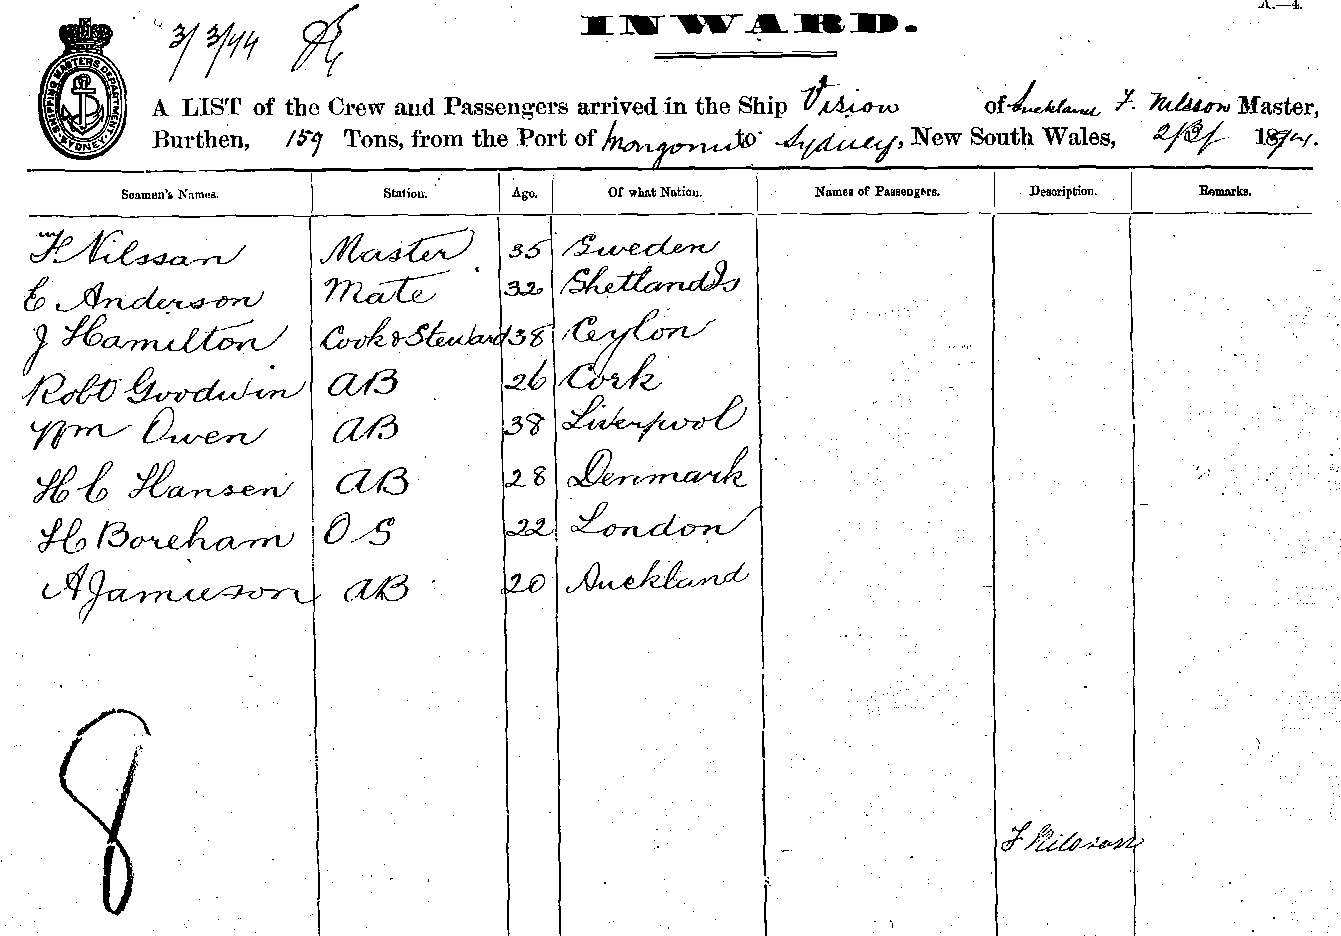 A.—4.
INWARD.
3/3/94
SHIPPING MASTERS DEPARTMENT SYDNEY
A LIST of the Crew and Passengers arrived in the Ship Vision of Auckland F. Nilsson Master,
Burthen, 159 Tons, from the Port of Mongonui to Sydney, New South Wales, 2/3/ 1894.
Seamen's Names. Station. Age. Of what Nation. Names of Passengers. Description. Remarks.
F. Nilssan Master 35 Sweden
E Anderson Mate 32 Shetland Is
J Hamilton Cook & Steward 38 Ceylon
Robt Goodwin AB 26 Cork
Wm Owen AB 38 Liverpool
H C Hansen AB 28 Denmark
H Boreham O S 22 London
A Jamieson AB 20 Auckland
8
F Nilsson